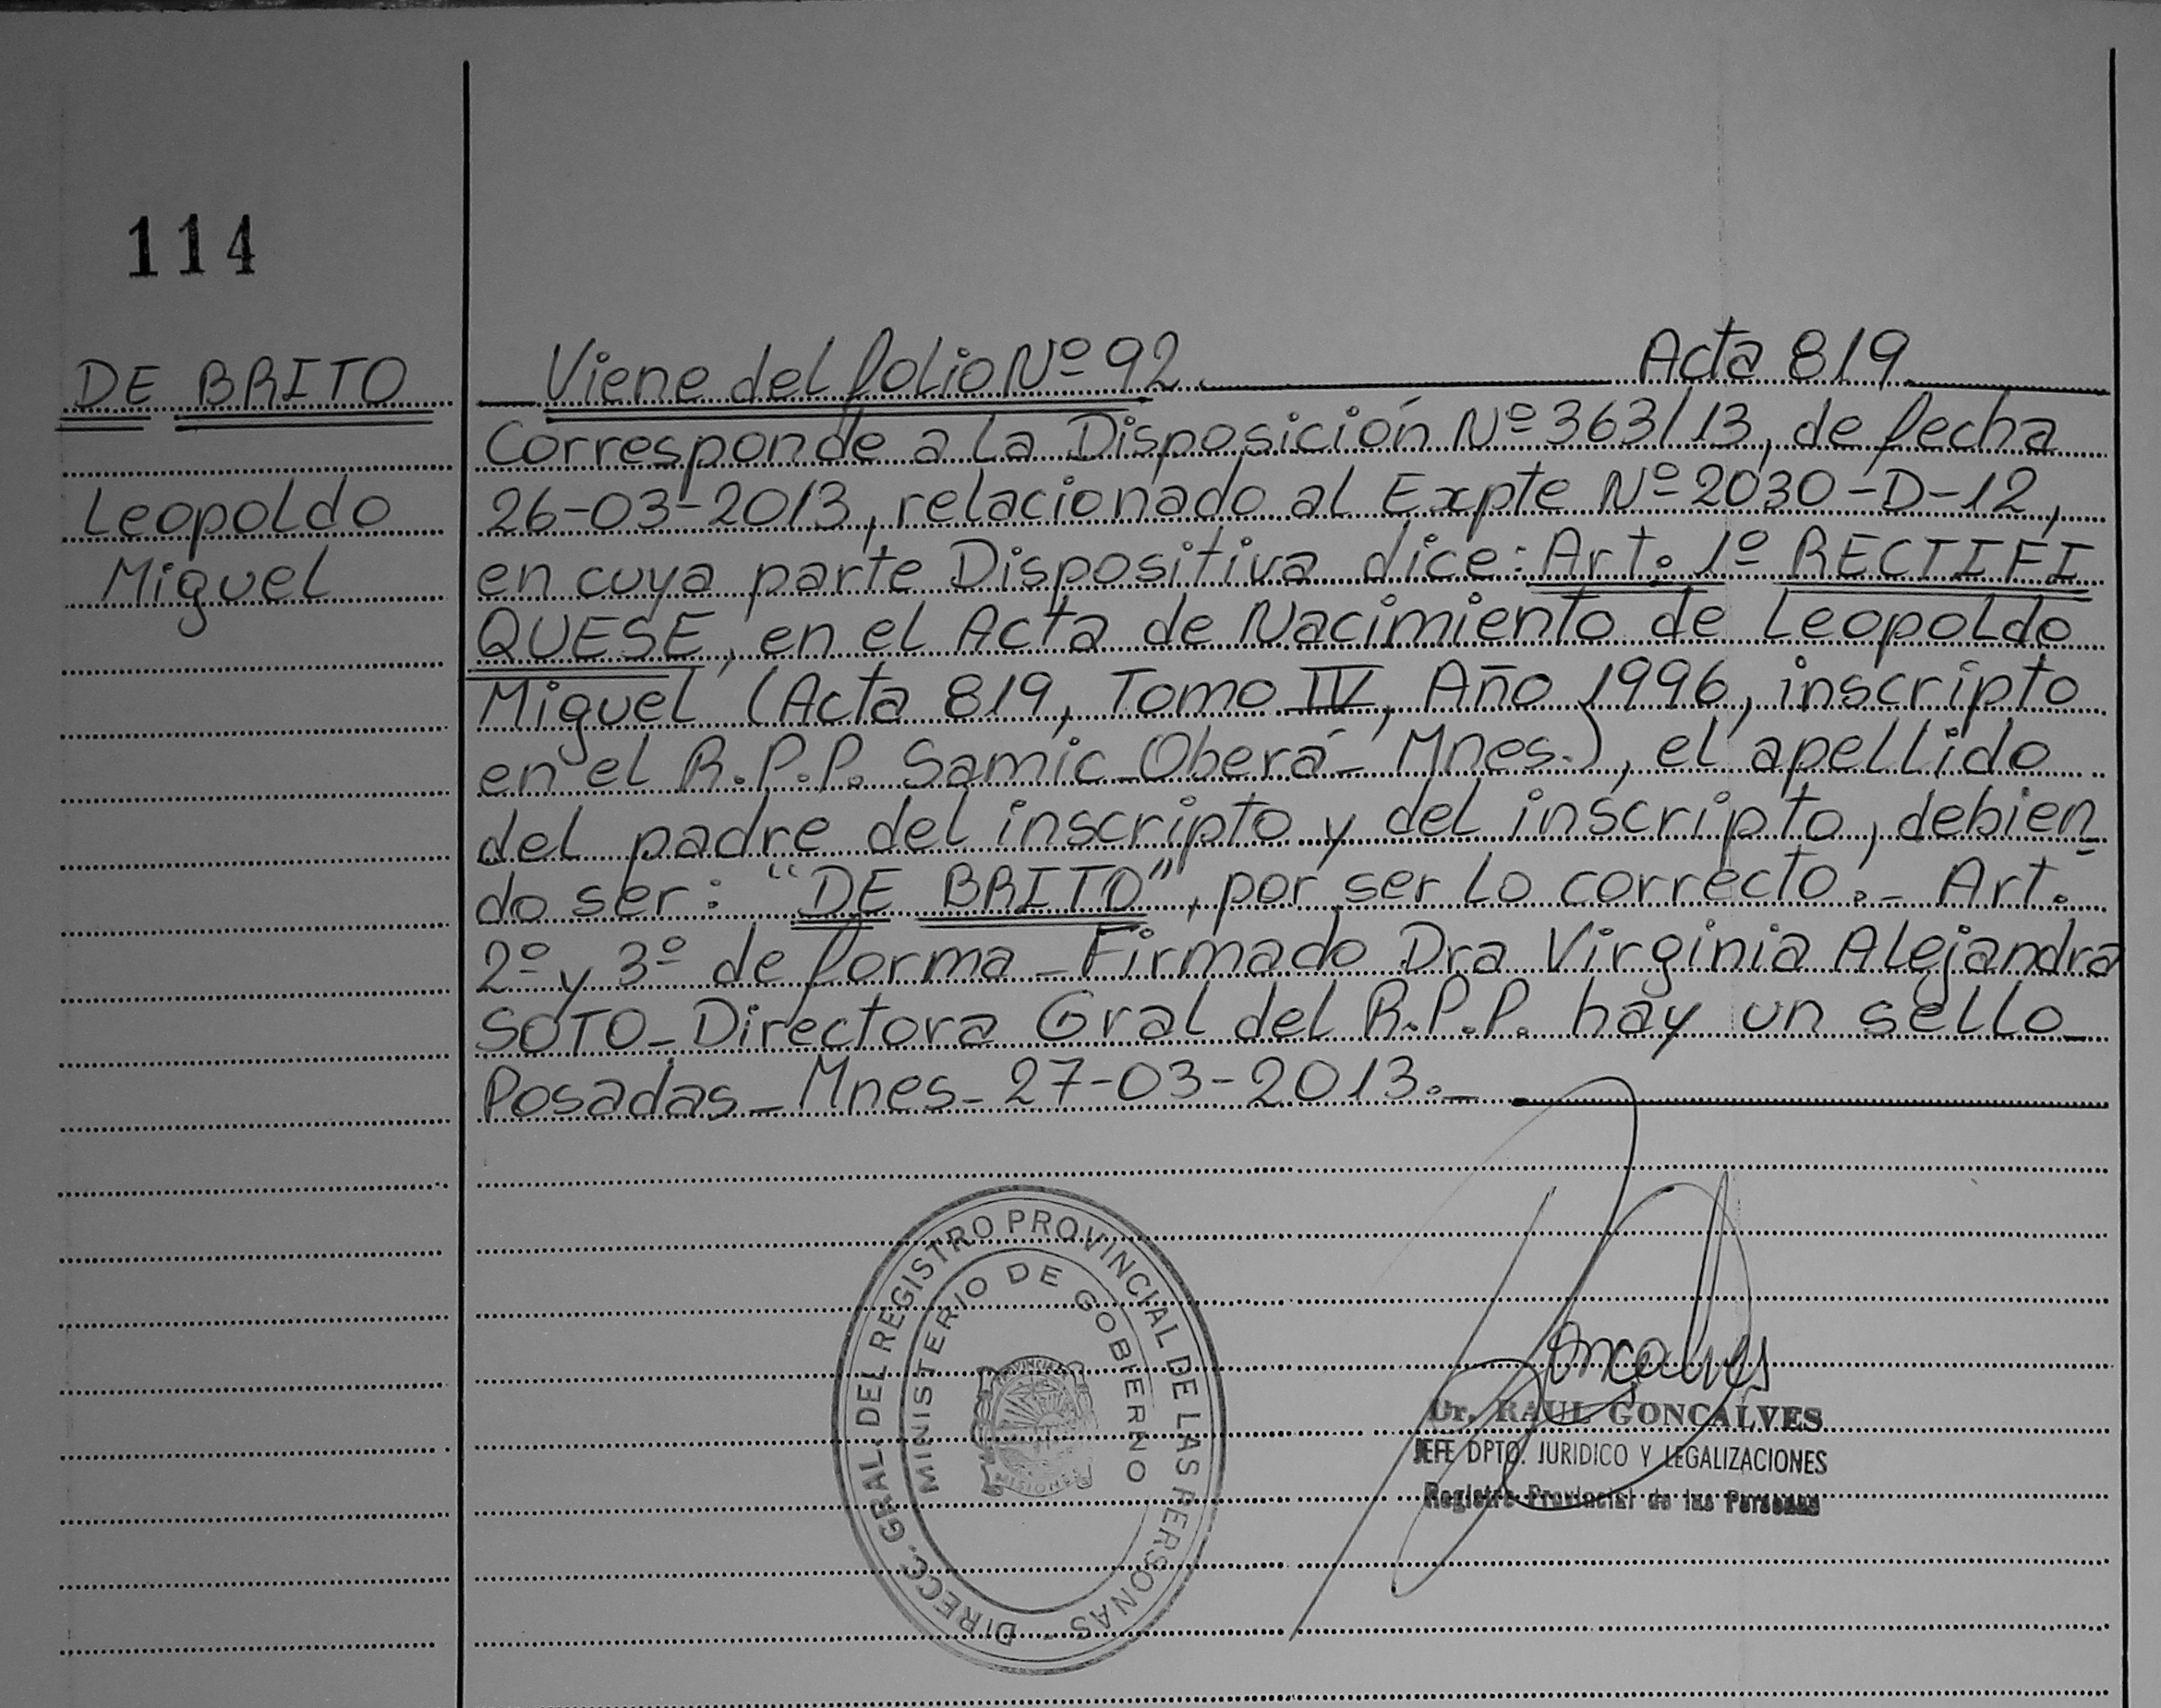 114
DE BRITO
Leopoldo
Miguel
Viene del folio Nº 92 Acta 819
Corresponde a la Disposición Nº 363/13, de fecha
26-03-2013, relacionado al Expte Nº 2030-D-12,
en cuya parte Dispositiva dice: Art. 1º RECTIFI
QUESE, en el Acta de Nacimiento de Leopoldo
Miguel (Acta 819, Tomo IV, Año 1996, inscripto
en el R.P.P. Samic-Oberá- Mnes.), el apellido
del padre del inscripto y del inscripto, debien-
do ser: "DE BRITO", por ser lo correcto.- Art.
2º y 3º de forma - Firmado Dra Virginia Alejandra
SOTO - Directora Gral del R.P.P. hay un sello -
Posadas - Mnes - 27-03-2013.-
DIRECC. GRAL. DEL REGISTRO PROVINCIAL DE LAS PERSONAS -
MINISTERIO DE GOBIERNO
MISIONES
Goncalves
Dr. RAUL GONCALVES
JEFE DPTO. JURIDICO Y LEGALIZACIONES
Registro Provincial de las Personas